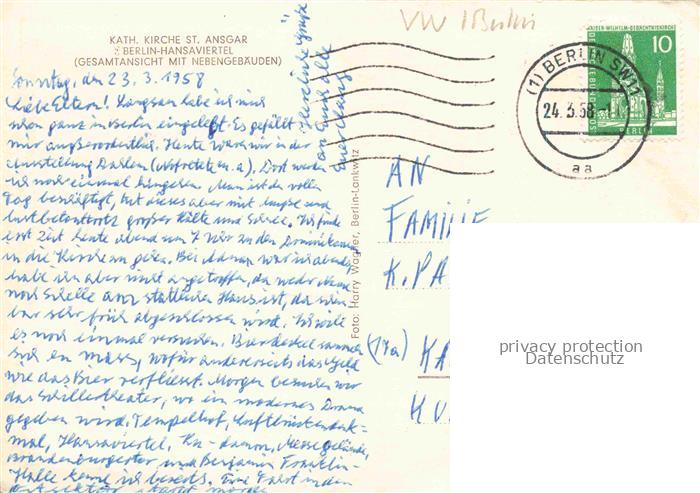 KATH. KIRCHE ST. ANSGAR
BERLIN-HANSAVIERTEL
(GESAMTANSICHT MIT NEBENGEBÄUDEN)
Sonntag, den 23.3.1958
Liebe Eltern! Langsam habe ich mich
schon ganz in Berlin eingelebt. Es gefällt
mir außerordentlich. Heute waren wir in der
Ausstellung Dahlem (Nofretete u.a.). Dort werde
ich noch einmal hingehen. Man ist den vollen
Tag beschäftigt, tut dieses aber mit Muße und
lustbetont trotz großer Kälte und Schnee. Ich finde
erst Zeit heute abend um 7 Uhr zu den Dominikanern
in die Kirche zu gehen. Bei war ich abends,
habe ihn aber nicht angetroffen, da weder Name
noch Schelle am stattlichen Haus ist, das schein-
bar sehr früh abgeschlossen wird. Ich will
es noch einmal versuchen. Bierdeckel sammeln
sich en mass, wofür andererseits das Geld
wie das Bier verfliesst. Morgen besuchen wir
das Schillertheater, wo ein modernes Drama
gegeben wird. Tempelhof, Luftbrückendenk-
mal, Hansaviertel, Ku-damm, Messegelände,
Brandenburgertor und Benjamin Franklin-
Halle kenne ich bereits. Eine Fahrt in den
Ostsektor startet morgen
Herzliche Grüße
an Euch alle
Euer
Foto: Harry Wagner, Berlin-Lankwitz
VW 1 Berlin
KAISER-WILHELM-GEDÄCHTNISKIRCHE
10
DEUTSCHE BUNDESPOST
BERLIN
(1) BERLIN SW11
24.3.58
aa
AN
FAMILIE
K. PA
(17a) KA
KU
privacy protection
Datenschutz